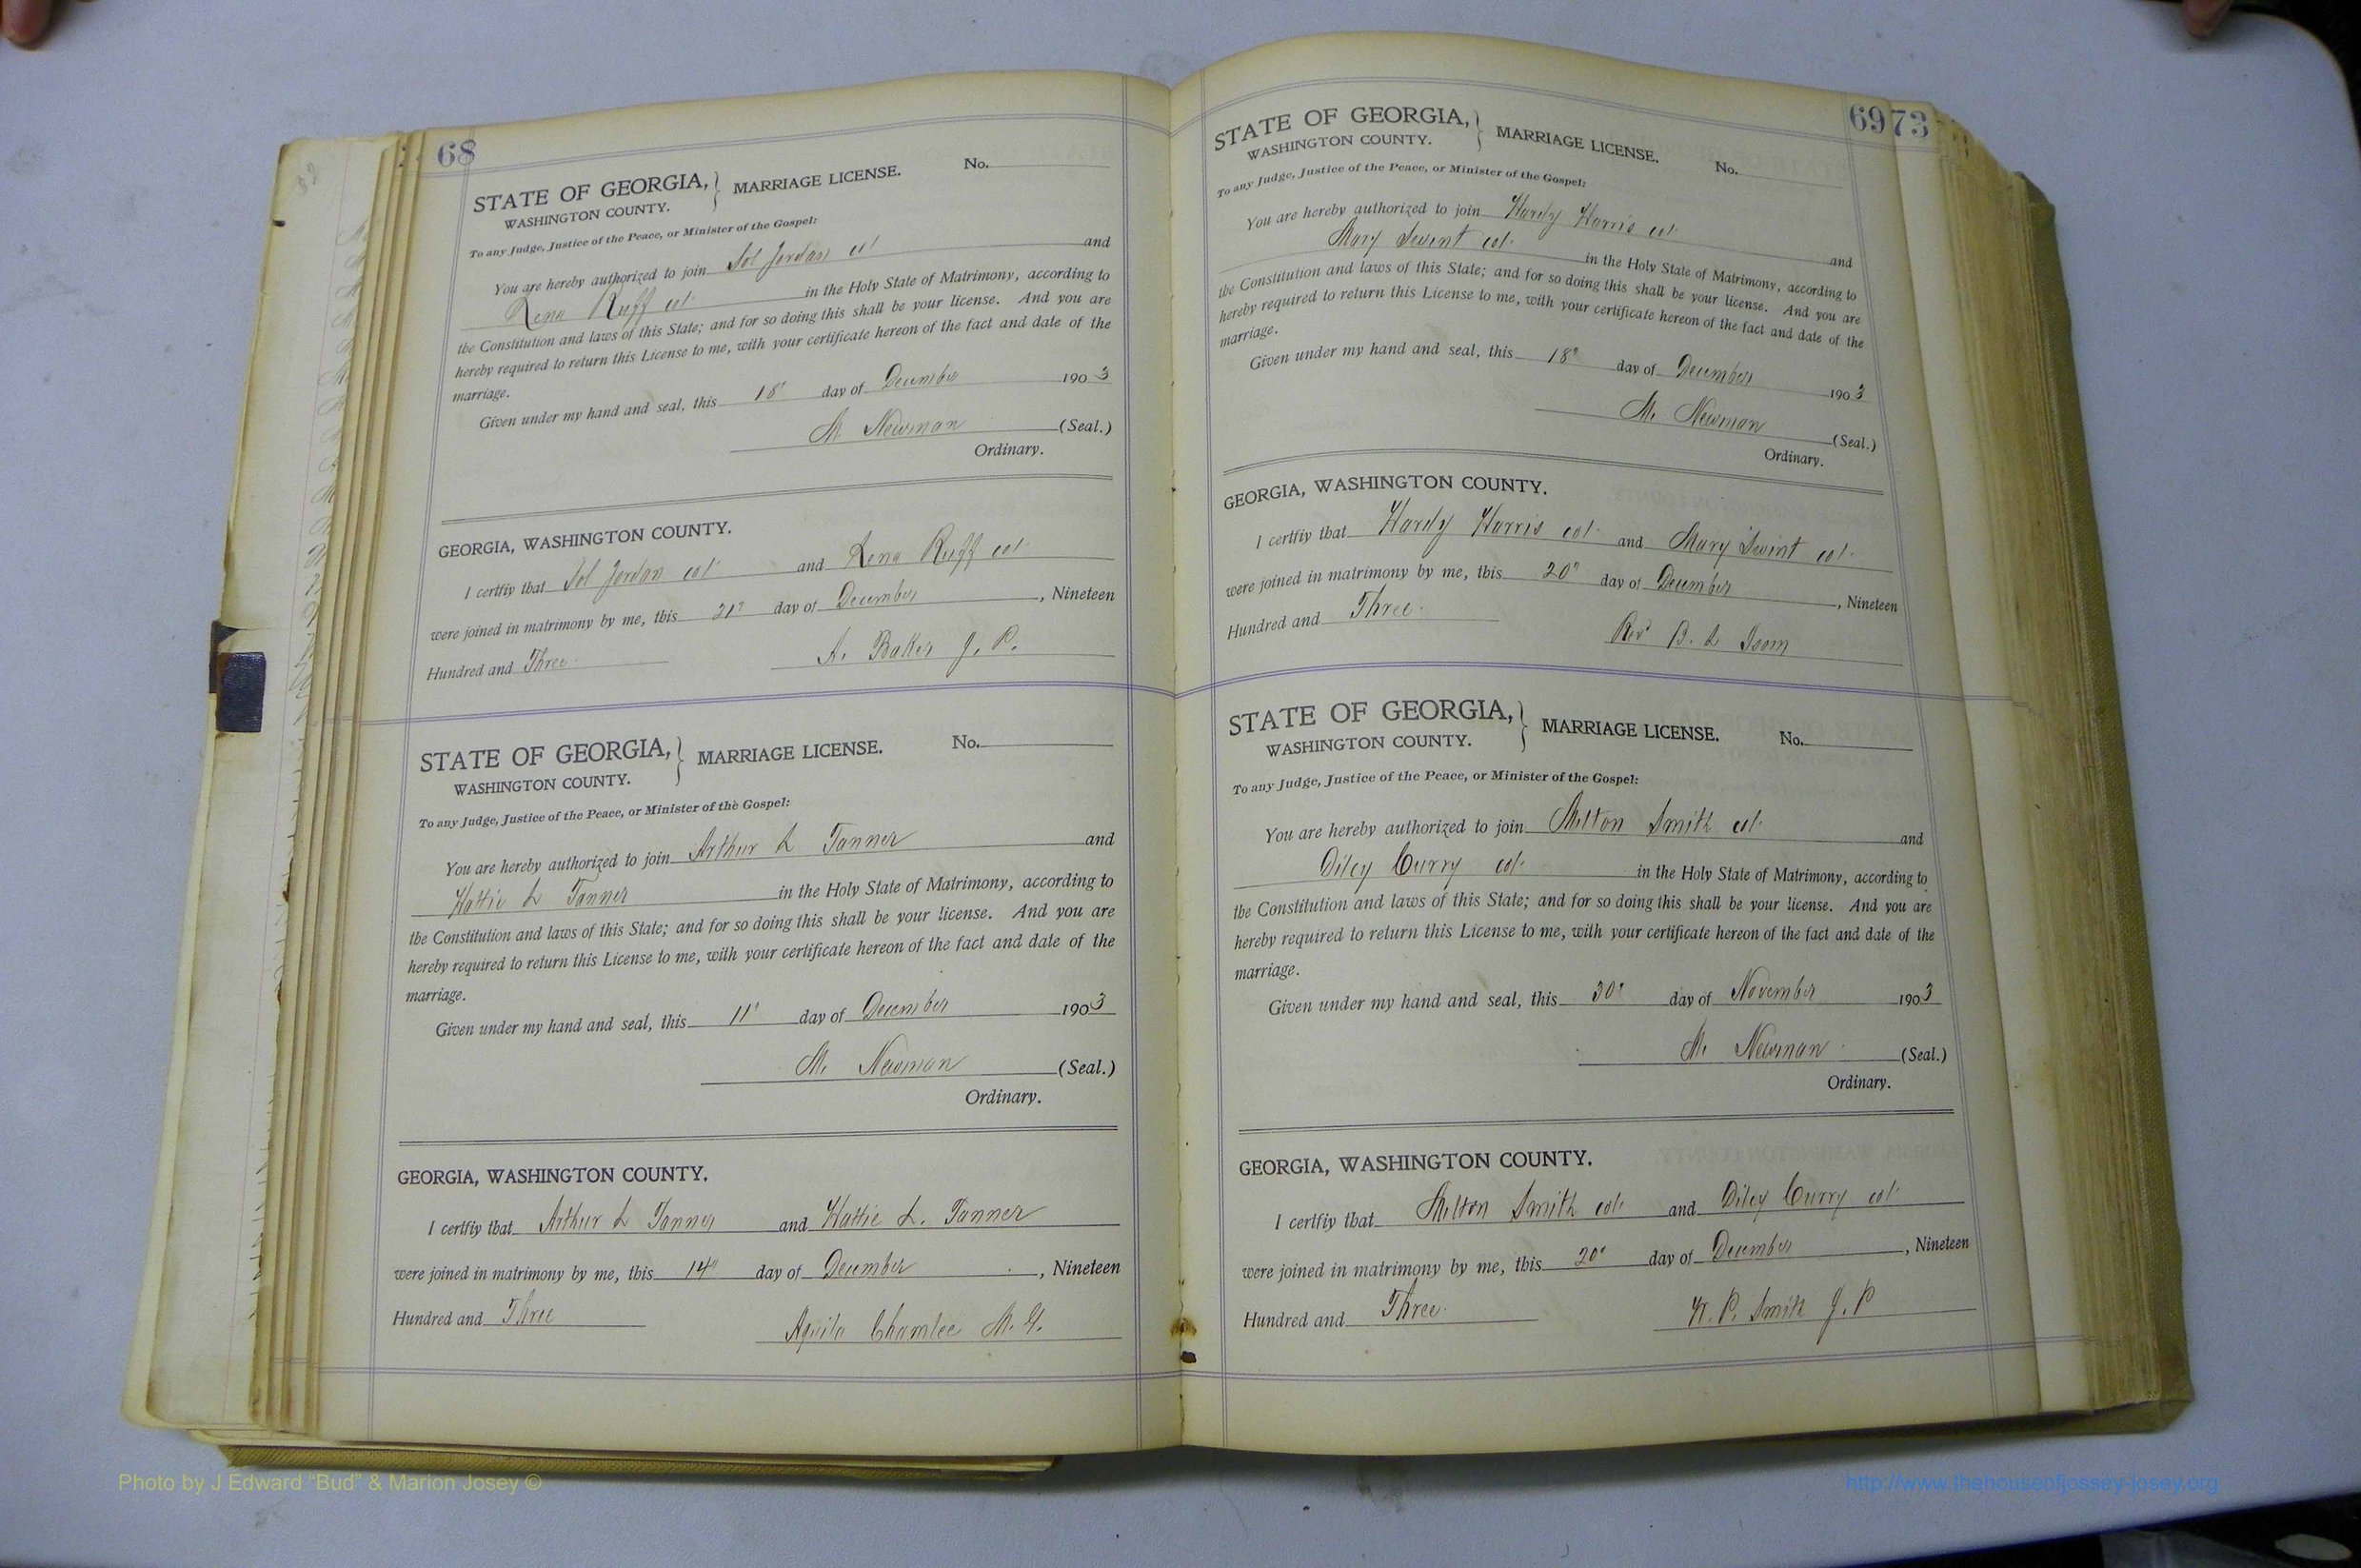 68
STATE OF GEORGIA, } MARRIAGE LICENSE. No.
WASHINGTON COUNTY.
To any Judge, Justice of the Peace, or Minister of the Gospel:
You are hereby authorized to join Sol Jordan col and
Lena Ruff col in the Holy State of Matrimony, according to
the Constitution and laws of this State; and for so doing this shall be your license. And you are
hereby required to return this License to me, with your certificate hereon of the fact and date of the
marriage.
Given under my hand and seal, this 18" day of December 1903
M Newman (Seal.)
Ordinary.
GEORGIA, WASHINGTON COUNTY.
I certfiy that Sol Jordan col and Lena Ruff col
were joined in matrimony by me, this 21" day of December, Nineteen
Hundred and Three A. Baker J. P.
STATE OF GEORGIA, } MARRIAGE LICENSE. No.
WASHINGTON COUNTY.
To any Judge, Justice of the Peace, or Minister of the Gospel:
You are hereby authorized to join Arthur L Tanner and
Hattie L Tanner in the Holy State of Matrimony, according to
the Constitution and laws of this State; and for so doing this shall be your license. And you are
hereby required to return this License to me, with your certificate hereon of the fact and date of the
marriage.
Given under my hand and seal, this 11" day of December 1903
M. Newman (Seal.)
Ordinary.
GEORGIA, WASHINGTON COUNTY.
I certfiy that Arthur L Tanner and Hattie L. Tanner
were joined in matrimony by me, this 14" day of December, Nineteen
Hundred and Three Aquila Chamlee M. G.
69 73
STATE OF GEORGIA, } MARRIAGE LICENSE. No.
WASHINGTON COUNTY.
To any Judge, Justice of the Peace, or Minister of the Gospel:
You are hereby authorized to join Hardy Harris col
Mary Swint col. and
in the Holy State of Matrimony, according to
the Constitution and laws of this State; and for so doing this shall be your license. And you are
hereby required to return this License to me, with your certificate hereon of the fact and date of the
marriage.
Given under my hand and seal, this 18" day of December 1903
M. Newman (Seal.)
Ordinary.
GEORGIA, WASHINGTON COUNTY.
I certfiy that Hardy Harris col and Mary Swint col.
were joined in matrimony by me, this 20" day of December, Nineteen
Hundred and Three. Rev B. L Isom
STATE OF GEORGIA, } MARRIAGE LICENSE. No.
WASHINGTON COUNTY.
To any Judge, Justice of the Peace, or Minister of the Gospel:
You are hereby authorized to join Milton Smith col. and
Diley Curry col in the Holy State of Matrimony, according to
the Constitution and laws of this State; and for so doing this shall be your license. And you are
hereby required to return this License to me, with your certificate hereon of the fact and date of the
marriage.
Given under my hand and seal, this 30" day of November 1903
M. Newman (Seal.)
Ordinary.
GEORGIA, WASHINGTON COUNTY.
I certfiy that Milton Smith col. and Diley Curry col
were joined in matrimony by me, this 20" day of December, Nineteen
Hundred and Three. W. P. Smith J. P
Photo by J Edward “Bud” & Marion Josey ©
http://www.thehouseofjossey-josey.org